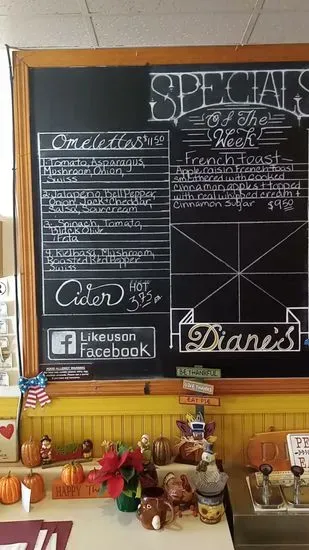 SPECIALS
Of The
Week
Omelettes $11.50
1. Tomato, Asparagus,
Mushroom, Onion,
Swiss
2. Jalapeno, Bell Pepper,
Onion, Jack+Cheddar,
Salsa, Sourcream
3. Spinach, Tomato,
Black Olive
Feta
4. Kielbasa, Mushroom,
Roasted Red Pepper
Swiss
French toast
Apple raisin French toast
smothered with cooked
cinnamon apples + topped
with real whipped cream +
Cinnamon Sugar $9.50
Cider HOT
3.75
f Like us on
Facebook
Diane's
BE THANKFUL
GIVE THANKS
EAT PIE
HAPPY